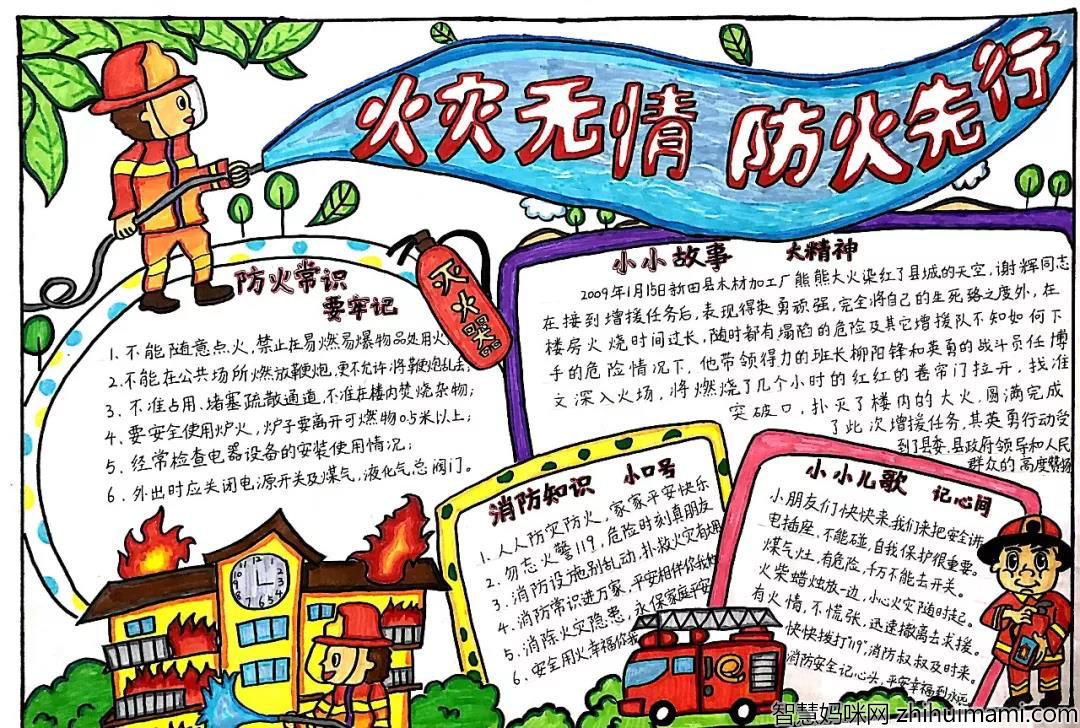 火灾无情 防火先行
防火常识
要牢记
1、不能随意点火,禁止在易燃易爆物品处用火;
2、不能在公共场所燃放鞭炮,更不允许将鞭炮乱丢;
3、不准占用、堵塞疏散通道,不准在楼内焚烧杂物;
4、要安全使用炉火,炉子要离开可燃物0.5米以上;
5、经常检查电器设备的安装使用情况;
6、外出时应关闭电源开关及煤气,液化气总阀门。
灭火器
小小故事 大精神
2009年1月15日新田县木材加工厂熊熊大火染红了县城的天空,谢辉同志
在接到增援任务后,表现得英勇顽强,完全将自己的生死臵之度外,在
楼房火烧时间过长,随时都有塌陷的危险及其它增援队不知如何下
手的危险情况下,他带领得力的班长柳阳锋和英勇的战斗员任博
文深入火场,将燃烧了几个小时的红红的卷帘门拉开,找准
突破口,扑灭了楼内的大火,圆满完成
了此次增援任务,其英勇行动受
到了县委.县政府领导和人民
群众的高度赞扬
消防知识 小口号
1、人人防灾防火,家家平安快乐
2、勿忘火警119,危险时刻真朋友
3、消防设施别乱动,扑救火灾有用
4、消防常识进万家,平安相伴你我
5、消除火灾隐患,永保家庭平安
6、安全用火幸福你我
小小儿歌 记心间
小朋友们快快来我们来把安全讲
电插座,不能碰,自我保护很重要。
煤气灶,有危险,千万不能去开关。
火柴蜡烛放一边,小心火灾随时起。
有火情,不慌张,迅速撤离去求援。
快快拨打119,消防叔叔及时来。
消防安全记心头,平安幸福到永远
12 1 2 3 4 5 6 7 8 9 10 11
智慧妈咪网 zhihuimami.com